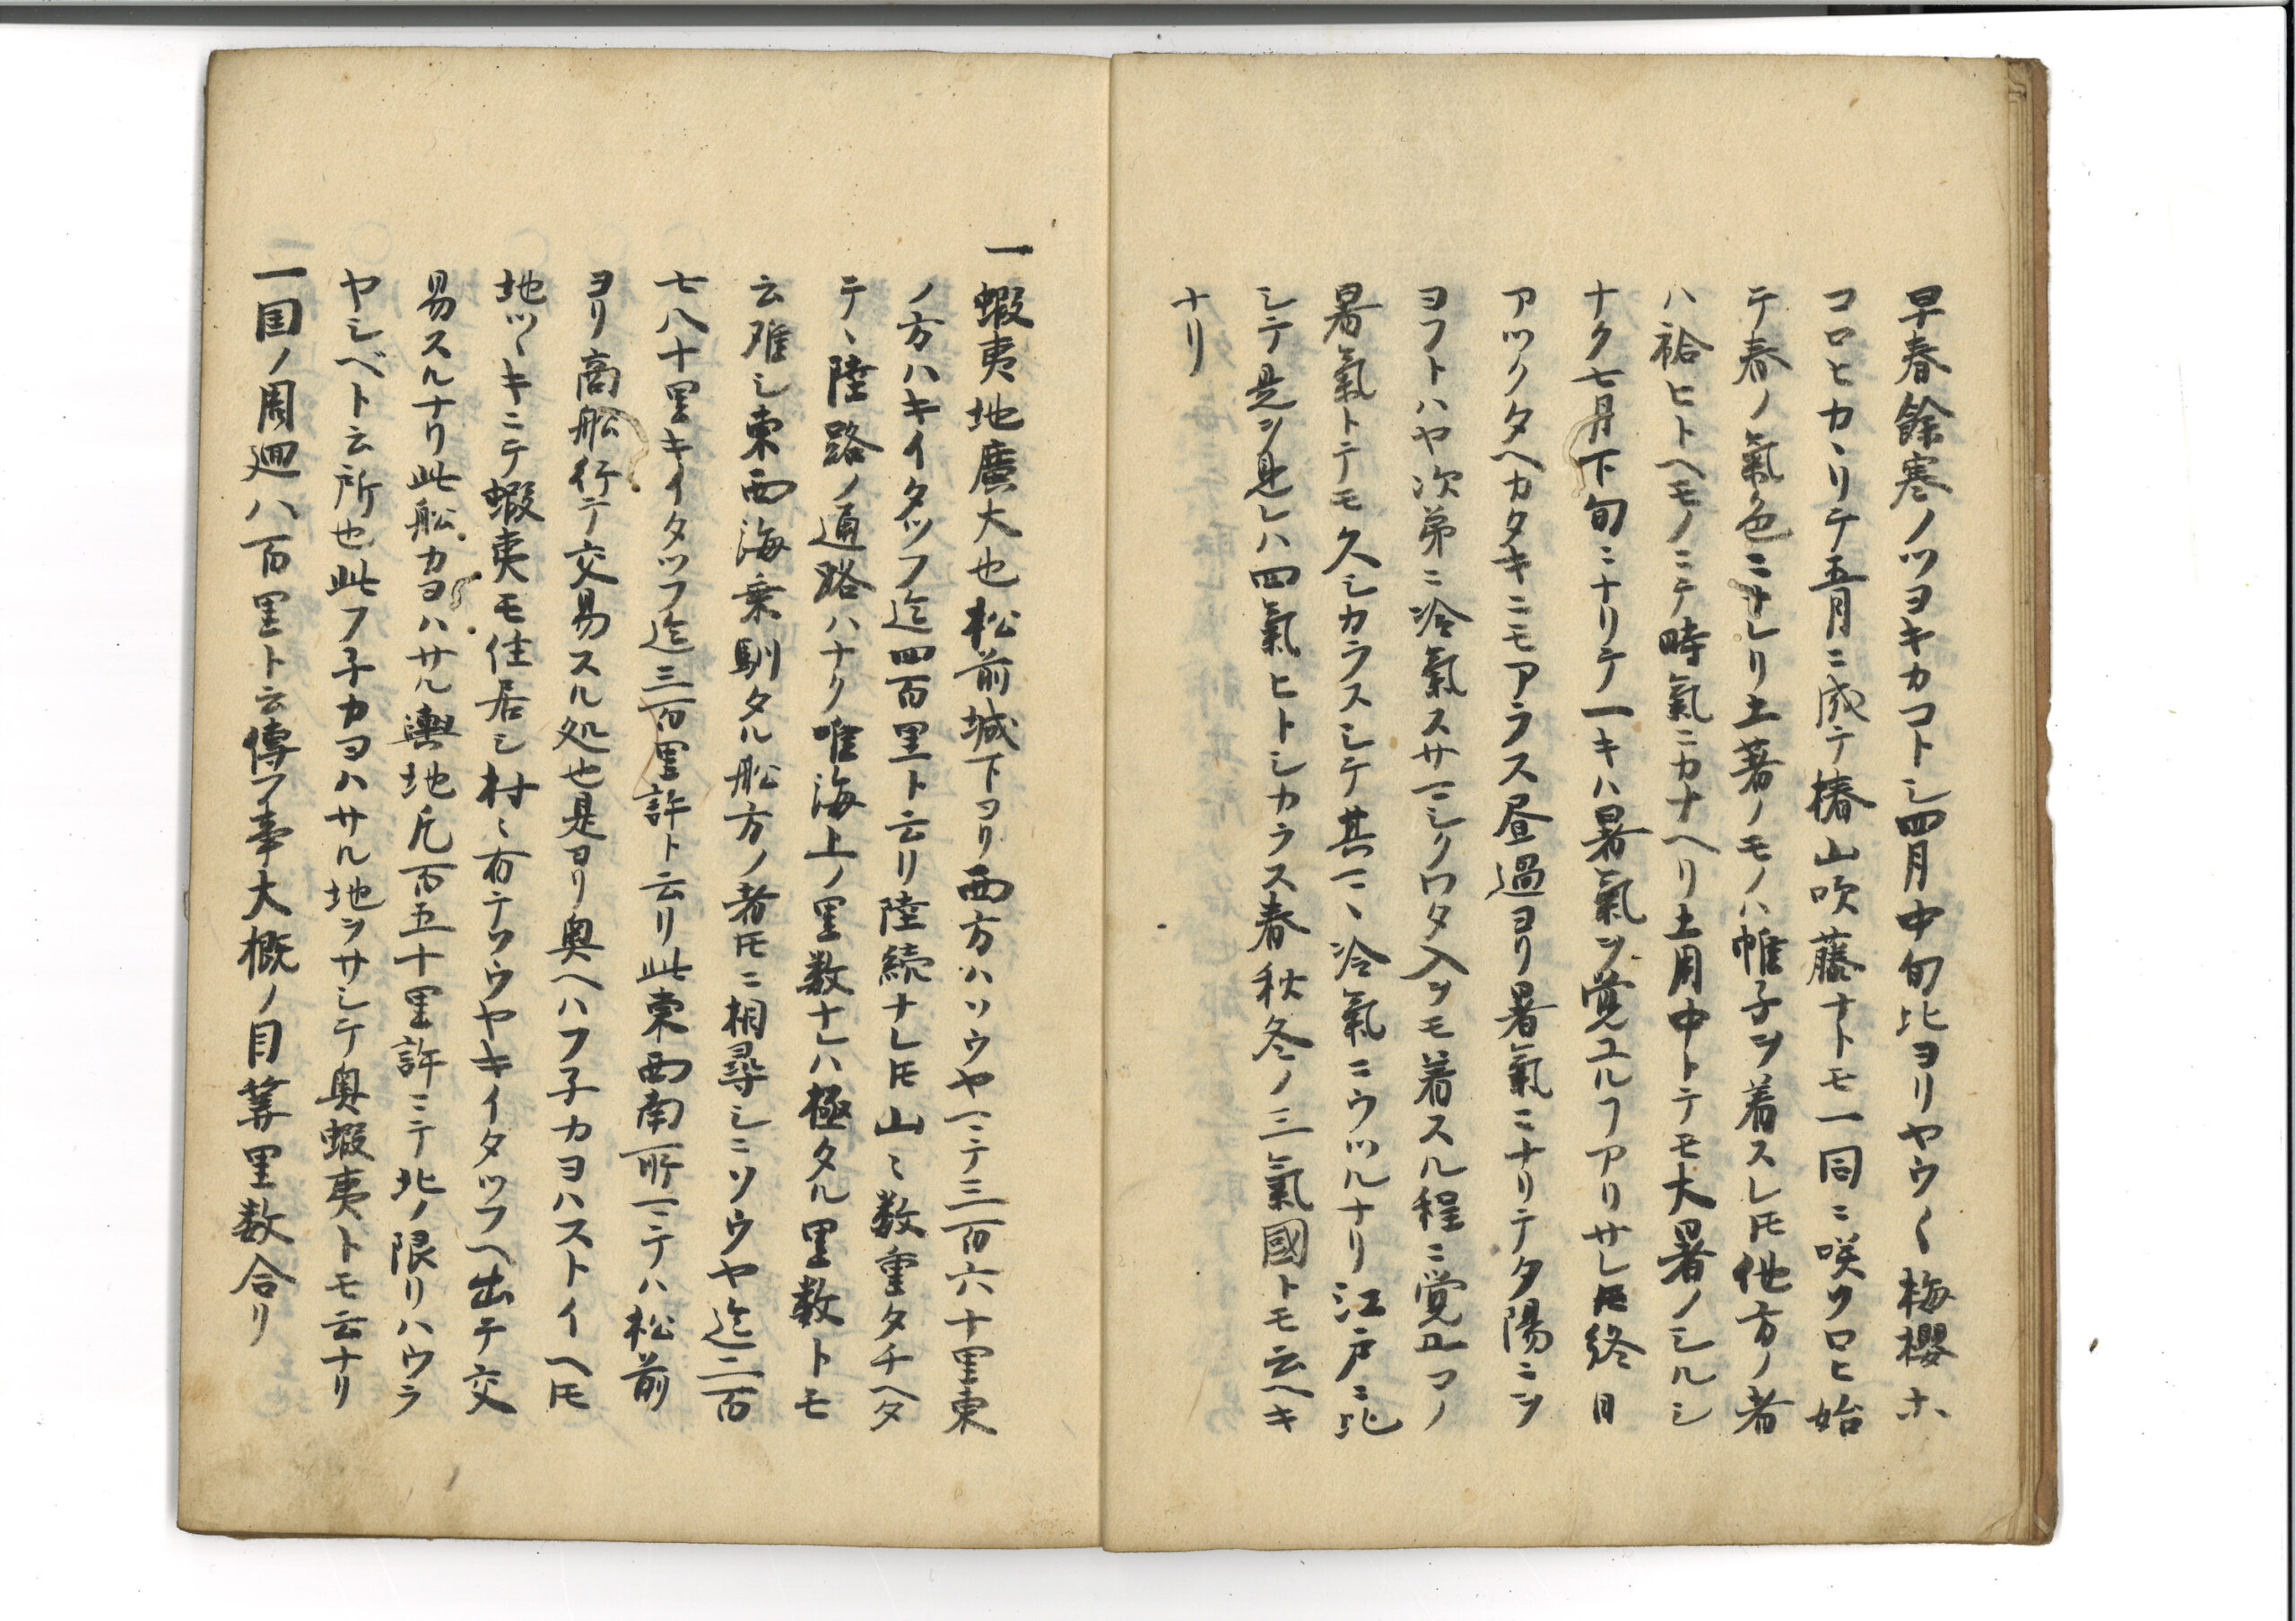 早春餘寒ノツヨキカコトシ四月中旬比ヨリヤウ〱梅櫻ホ
コロヒカヽリテ五月ニ成テ椿山吹藤ナトモ一同ニ咲ツロヒ始
テ春ノ氣色ニナレリ土著ノモノハ帷子ヲ着スレ𪜈他方ノ者
ハ袷ヒトヘモノニテ時氣ニカナヘリ土用中トテモ大暑ノシルシ
ナク七月下旬ニナリテ一キハ暑氣ヲ覚ユルヿアリサレ𪜈終日
アツクタヘカタキニモアラス昼過ヨリ暑氣ニナリテ夕陽ニヲ
ヨフトハヤ次第ニ冷氣スサマシクワタ入ヲモ着スル程ニ覚ユマノ
暑氣トテモ久シカラスシテ其マヽ冷氣ニウツルナリ江戸ニ比
シテ是ヲ見レハ四氣ヒトシカラス春秋冬ノ三氣國トモ云ヘキ
ナリ
一蝦夷地廣大也松前城下ヨリ西方ハソウヤマテ三百六十里東
ノ方ハキイタツフ迄四百里ト云リ陸続ナレ𪜈山〻数重タチヘタ
テヽ陸路ノ通路ハナク唯海上ノ里数ナレハ極タル里数トモ
云难シ東西海乗馴タル舩方ノ者𪜈ニ相尋シニソウヤ迄二百
七八十里キイタツフ迄三百里許ト云リ此東西南所マテハ松前
ヨリ商舩行テ交易スル処也是ヨリ奥ヘハフ子カヨハストイヘ𪜈
地ツヽキニテ蝦夷モ住居シ村〻有テソウヤキイタツフヘ出テ交
易スルナリ此舩カヨハサル輿地凡百五十里許ニテ北ノ限リハウラ
ヤシベト云所也此フ子カヨハサル地ヲサシテ奥蝦夷トモ云ナリ
一国ノ周廻ハ八百里ト云傳フ事大概ノ目筭里数合リ